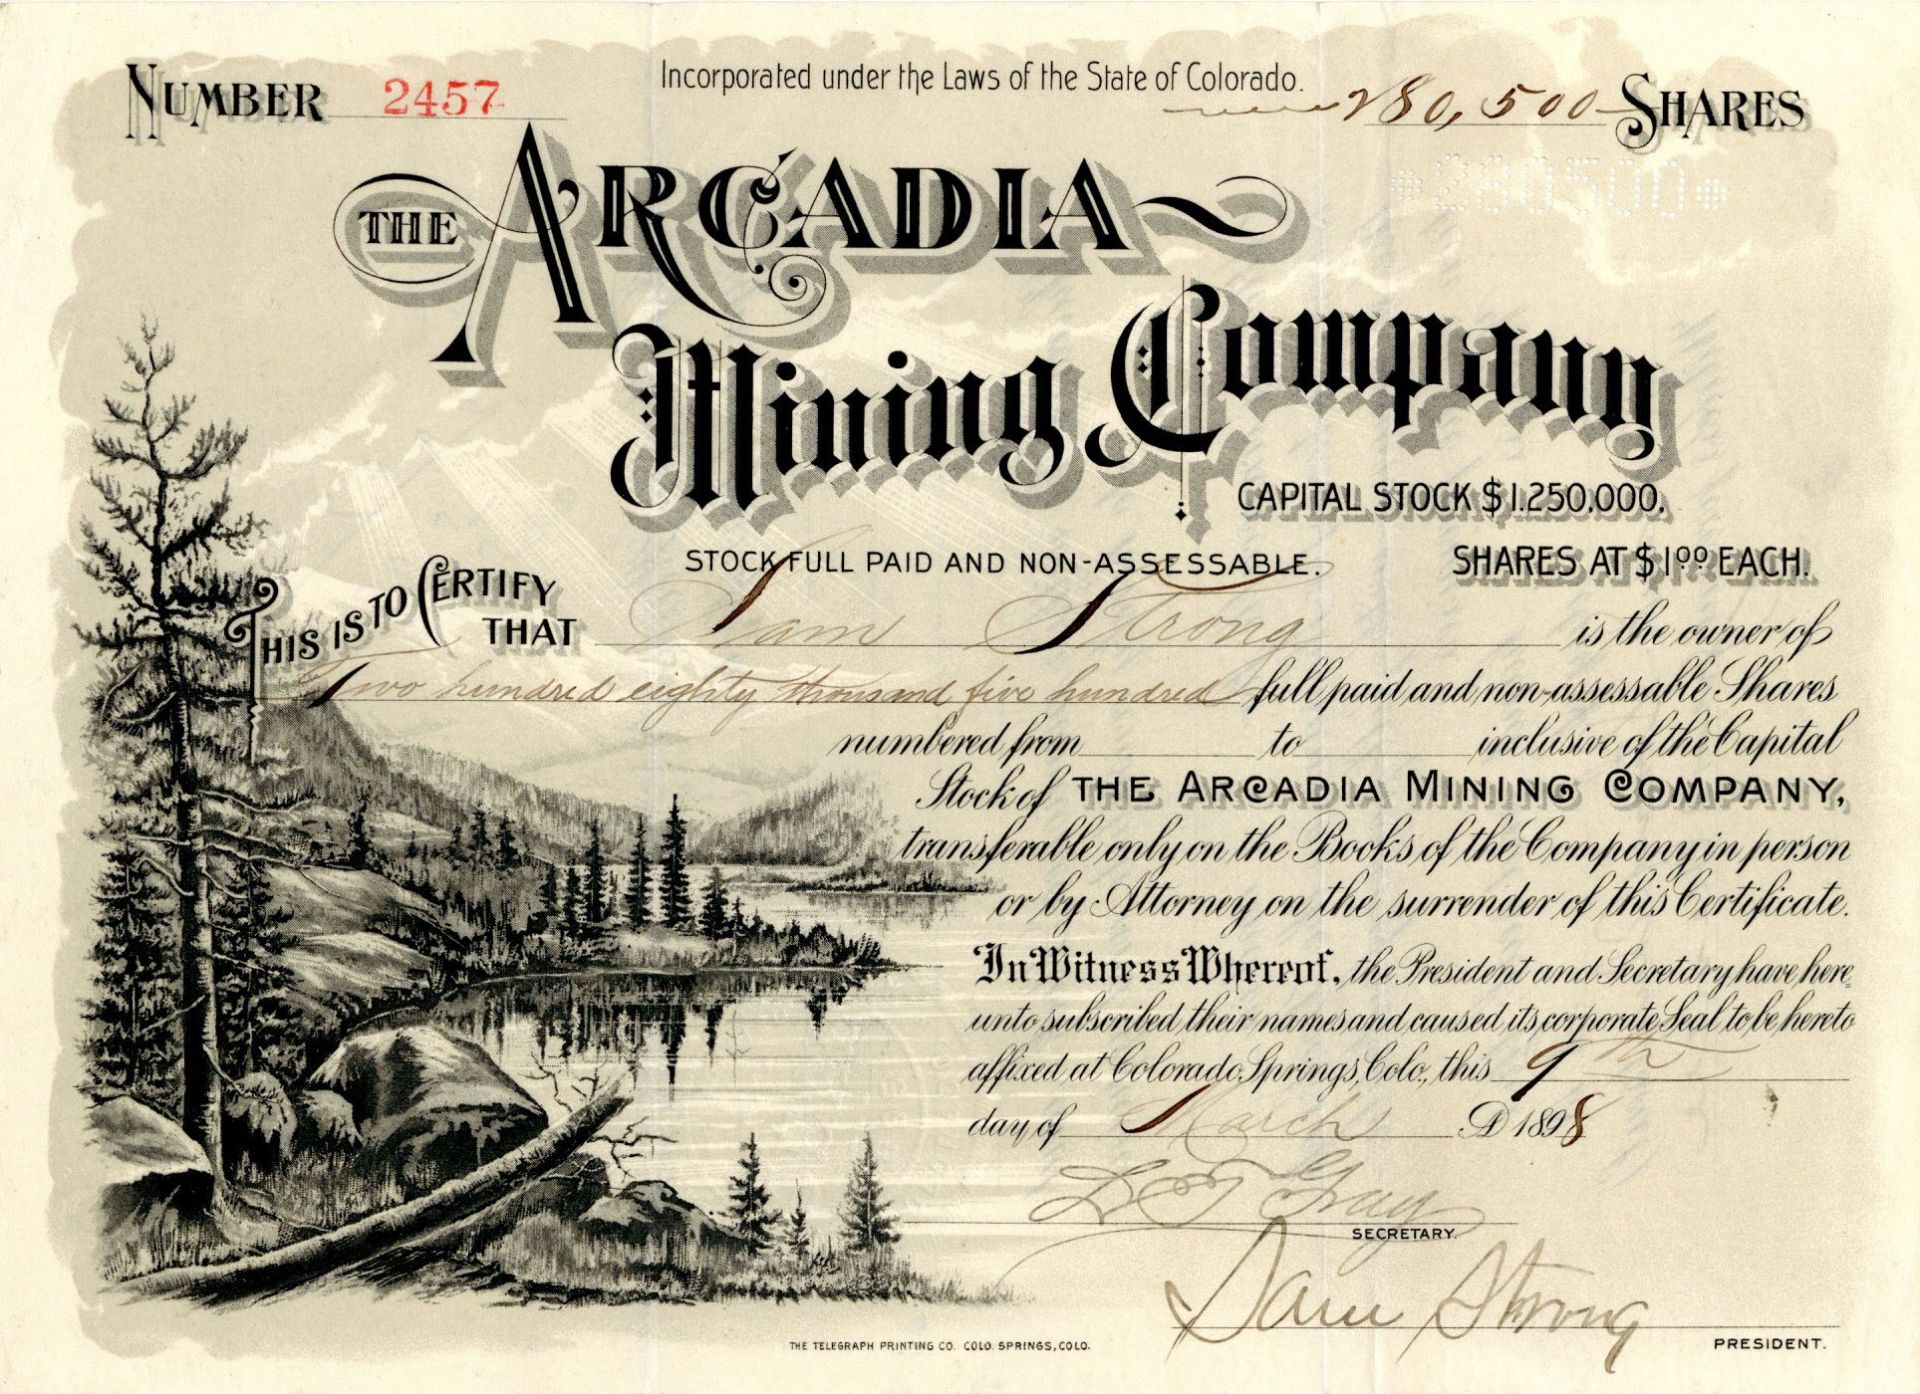 Incorporated under the Laws of the State of Colorado.
NUMBER 2457
280,500 SHARES
*280500*
THE ARCADIA
Mining Company
CAPITAL STOCK $1.250.000.
STOCK FULL PAID AND NON-ASSESSABLE.
SHARES AT $1.00 EACH.
THIS IS TO CERTIFY
THAT Sam Strong is the owner of
Two hundred eighty thousand five hundred full paid and non-assessable Shares
numbered from to inclusive of the Capital
Stock of THE ARCADIA MINING COMPANY,
transferable only on the Books of the Company in person
or by Attorney on the surrender of this Certificate.
In Witness Whereof, the President and Secretary have here-
unto subscribed their names and caused its corporate Seal to be hereto
affixed at Colorado Springs, Colo., this 9th
day of March AD 1898
L T Gray
SECRETARY.
Sam Strong
PRESIDENT.
THE TELEGRAPH PRINTING CO. COLO. SPRINGS, COLO.